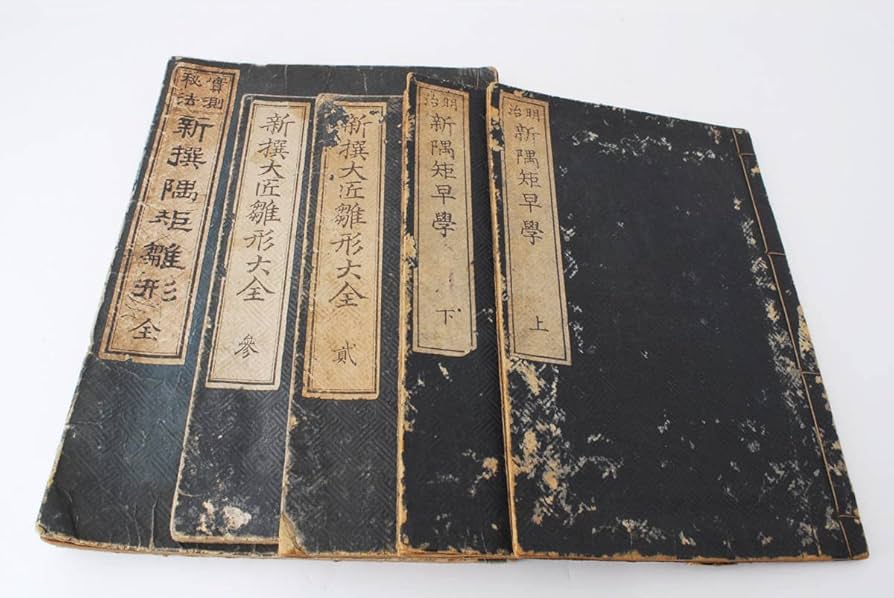 實測
秘法
新撰隅矩雛形 全
新撰大匠雛形大全 參
新撰大匠雛形大全 貳
明治
新隅矩早學 下
明治
新隅矩早學 上